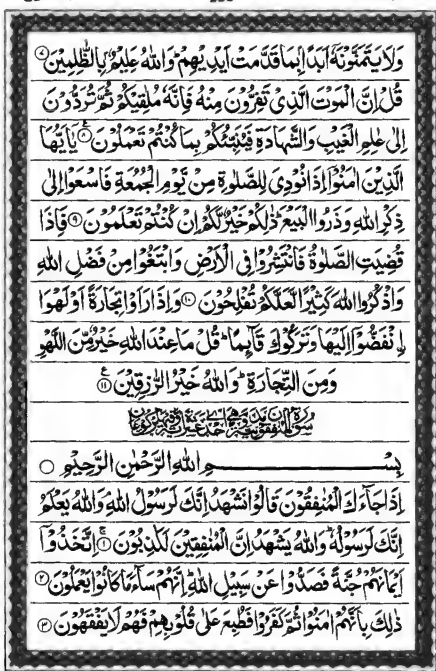 وَلَا يَتَمَنَّوْنَهٗۤ اَبَدًۢا بِمَا قَدَّمَتْ اَيْدِيْهِمْ ؕ وَاللّٰهُ عَلِيْمٌۢ بِالظّٰلِمِيْنَ ۷
قُلْ اِنَّ الْمَوْتَ الَّذِيْ تَفِرُّوْنَ مِنْهُ فَاِنَّهٗ مُلٰقِيْكُمْ ثُمَّ تُرَدُّوْنَ
اِلٰى عٰلِمِ الْغَيْبِ وَالشَّهَادَةِ فَيُنَبِّئُكُمْ بِمَا كُنْتُمْ تَعْمَلُوْنَ ۸ ع يٰۤاَيُّهَا
الَّذِيْنَ اٰمَنُوْۤا اِذَا نُوْدِيَ لِلصَّلٰوةِ مِنْ يَّوْمِ الْجُمُعَةِ فَاسْعَوْا اِلٰى
ذِكْرِ اللّٰهِ وَذَرُوا الْبَيْعَ ؕ ذٰلِكُمْ خَيْرٌ لَّكُمْ اِنْ كُنْتُمْ تَعْلَمُوْنَ ۹ فَاِذَا
قُضِيَتِ الصَّلٰوةُ فَانْتَشِرُوْا فِي الْاَرْضِ وَابْتَغُوْا مِنْ فَضْلِ اللّٰهِ
وَاذْكُرُوا اللّٰهَ كَثِيْرًا لَّعَلَّكُمْ تُفْلِحُوْنَ ۱۰ وَاِذَا رَاَوْا تِجَارَةً اَوْ لَهْوَا
ۨانْفَضُّوْۤا اِلَيْهَا وَتَرَكُوْكَ قَآئِمًا ؕ قُلْ مَا عِنْدَ اللّٰهِ خَيْرٌ مِّنَ اللَّهْوِ
وَمِنَ التِّجَارَةِ ؕ وَاللّٰهُ خَيْرُ الرّٰزِقِيْنَ ۱۱ ع
بِسْمِ اللّٰهِ الرَّحْمٰنِ الرَّحِيْمِ
اِذَا جَآءَكَ الْمُنٰفِقُوْنَ قَالُوْا نَشْهَدُ اِنَّكَ لَرَسُوْلُ اللّٰهِ ۘ وَاللّٰهُ يَعْلَمُ
اِنَّكَ لَرَسُوْلُهٗ ؕ وَاللّٰهُ يَشْهَدُ اِنَّ الْمُنٰفِقِيْنَ لَكٰذِبُوْنَ ۱ اِتَّخَذُوْۤا
اَيْمَانَهُمْ جُنَّةً فَصَدُّوْا عَنْ سَبِيْلِ اللّٰهِ ؕ اِنَّهُمْ سَآءَ مَا كَانُوْا يَعْمَلُوْنَ ۲
ذٰلِكَ بِاَنَّهُمْ اٰمَنُوْا ثُمَّ كَفَرُوْا فَطُبِعَ عَلٰى قُلُوْبِهِمْ فَهُمْ لَا يَفْقَهُوْنَ ۳